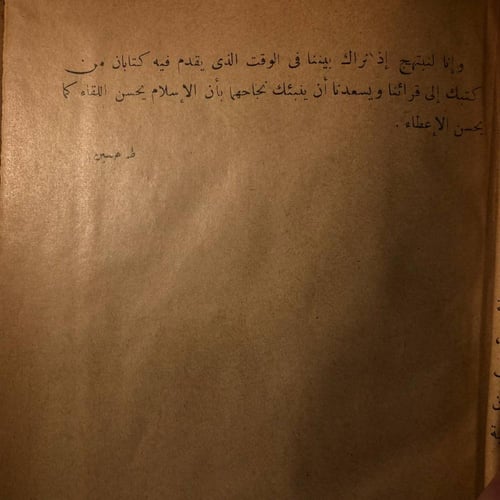 وإنا لنبتهج إذ نراك بيننا فى الوقت الذى يقدم فيه كتابان من
كتبك إلى قرائنا ويسعدنا أن ينبئك نجاحهما بأن الإسلام يحسن اللقاء كما
يحسن الإعطاء .
طه حسين